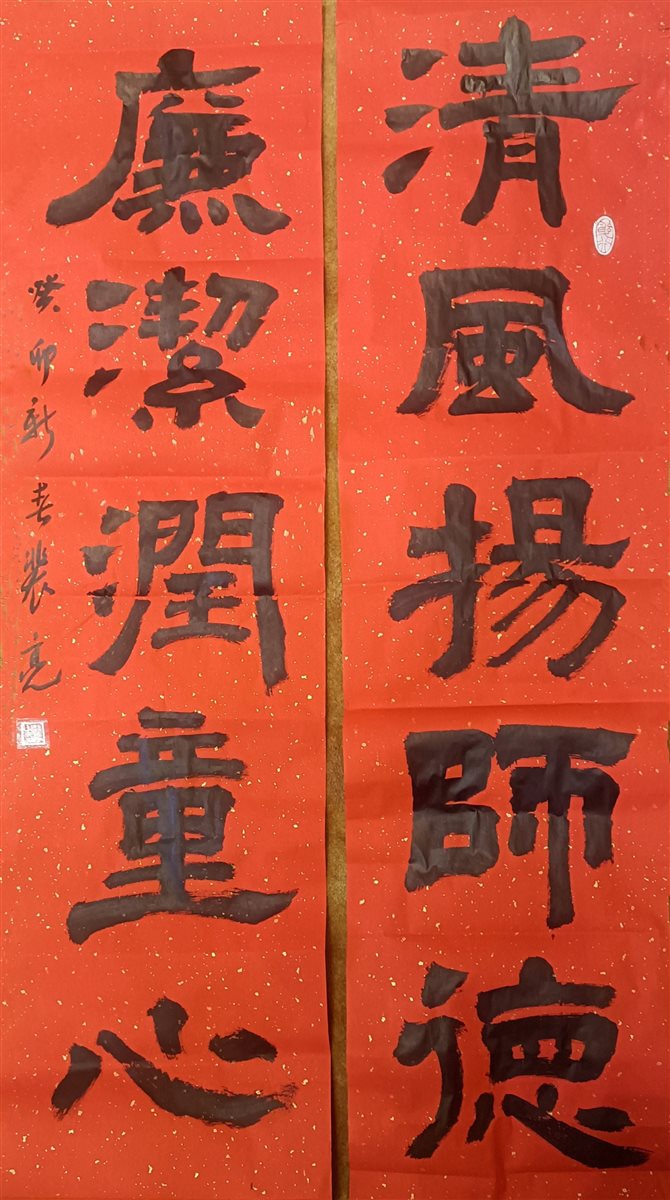 清風揚師德
廉潔潤童心
癸卯新春裴亮